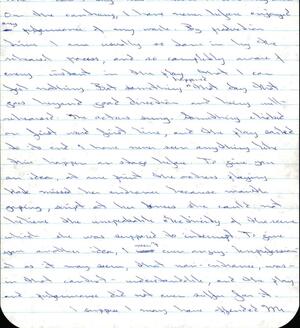 On the contrary, I have never before enjoyed
any performance of my work. By production
time I am usually so done in by the
rehearsal process, and so completely aware of
every instant in the play, that I can
feel nothing. But something happened that day that
goes beyond good direction and being well
rehearsed. The actors sang. Something clicked
on first word first line, and the play acted
to its end. I have never seen anything like
this happen on stage before. To give you
an idea, at one point the actress playing
missed her entrance because
, she at her knees she couldn't not
believe the unspeakable electricity of the scene
which she was supposed to interrupt. To give
you another idea, I wasn't even angry.
as it may seem, that non-entrance, was
in that context understandable, and the play
and performance did not even suffer for it.
I suppose I may have offended M